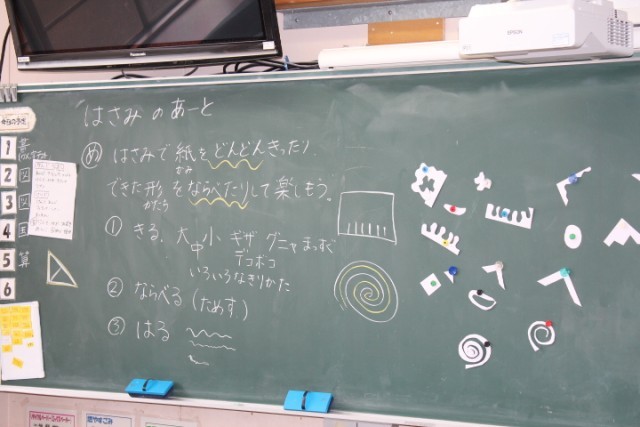 はさみのあーと
め はさみで紙をどんどんきったり、
かみ
できた形をならべたりして楽しもう。
かたち
① きる。大 中 小 ギザ グニャ まっすぐ
デコボコ
いろいろなきりかた
② ならべる(ためす)
③ はる
1
2 図
3 図
4 国
5 算
6
EPSON